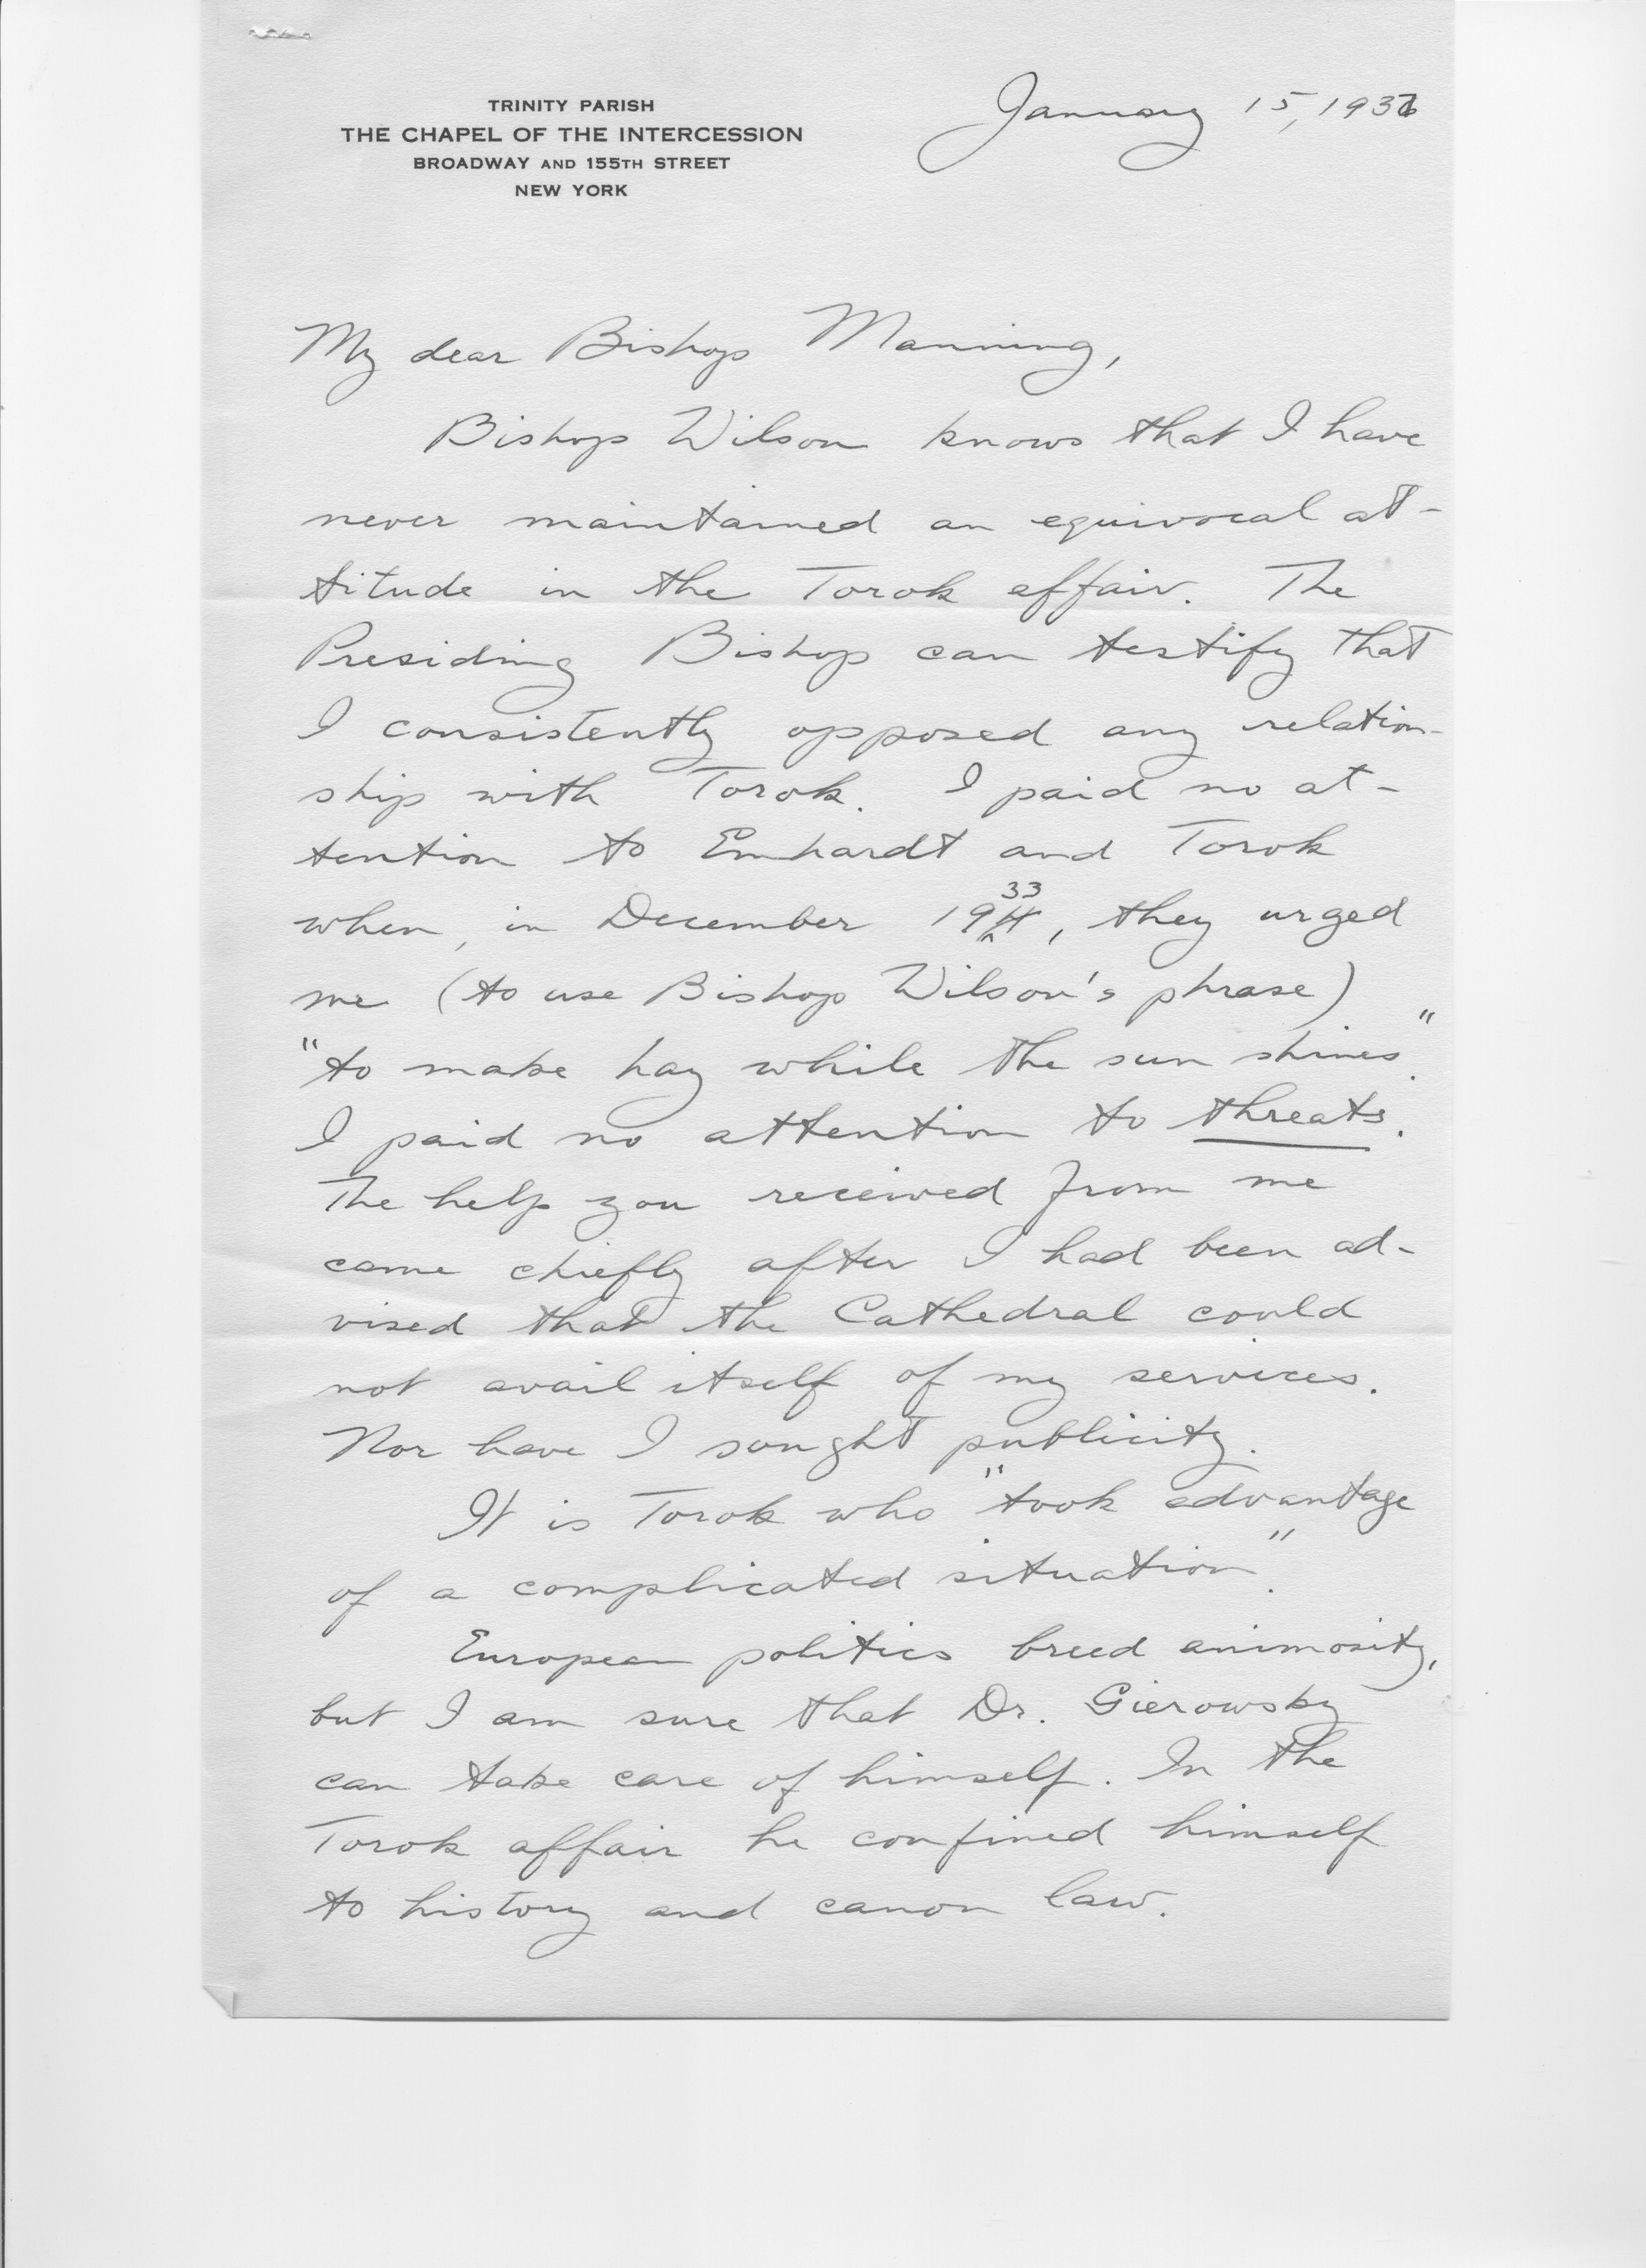 TRINITY PARISH
THE CHAPEL OF THE INTERCESSION
BROADWAY AND 155TH STREET
NEW YORK
January 15, 1936
My dear Bishop Manning,
Bishop Wilson knows that I have
never maintained an equivocal at-
titude in the Torok affair. The
Presiding Bishop can testify that
I consistently opposed any relation-
ship with Torok. I paid no at-
tention to Emhardt and Torok
when, in December 1933, they urged
me (to use Bishop Wilson's phrase)
"to make hay while the sun shines."
I paid no attention to threats.
The help you received from me
came chiefly after I had been ad-
vised that the Cathedral could
not avail itself of my services.
Nor have I sought publicity.
It is Torok who "took advantage
of a complicated situation."
European politics breed animosity,
but I am sure that Dr. Gierowsky
can take care of himself. In the
Torok affair he confined himself
to history and canon law.